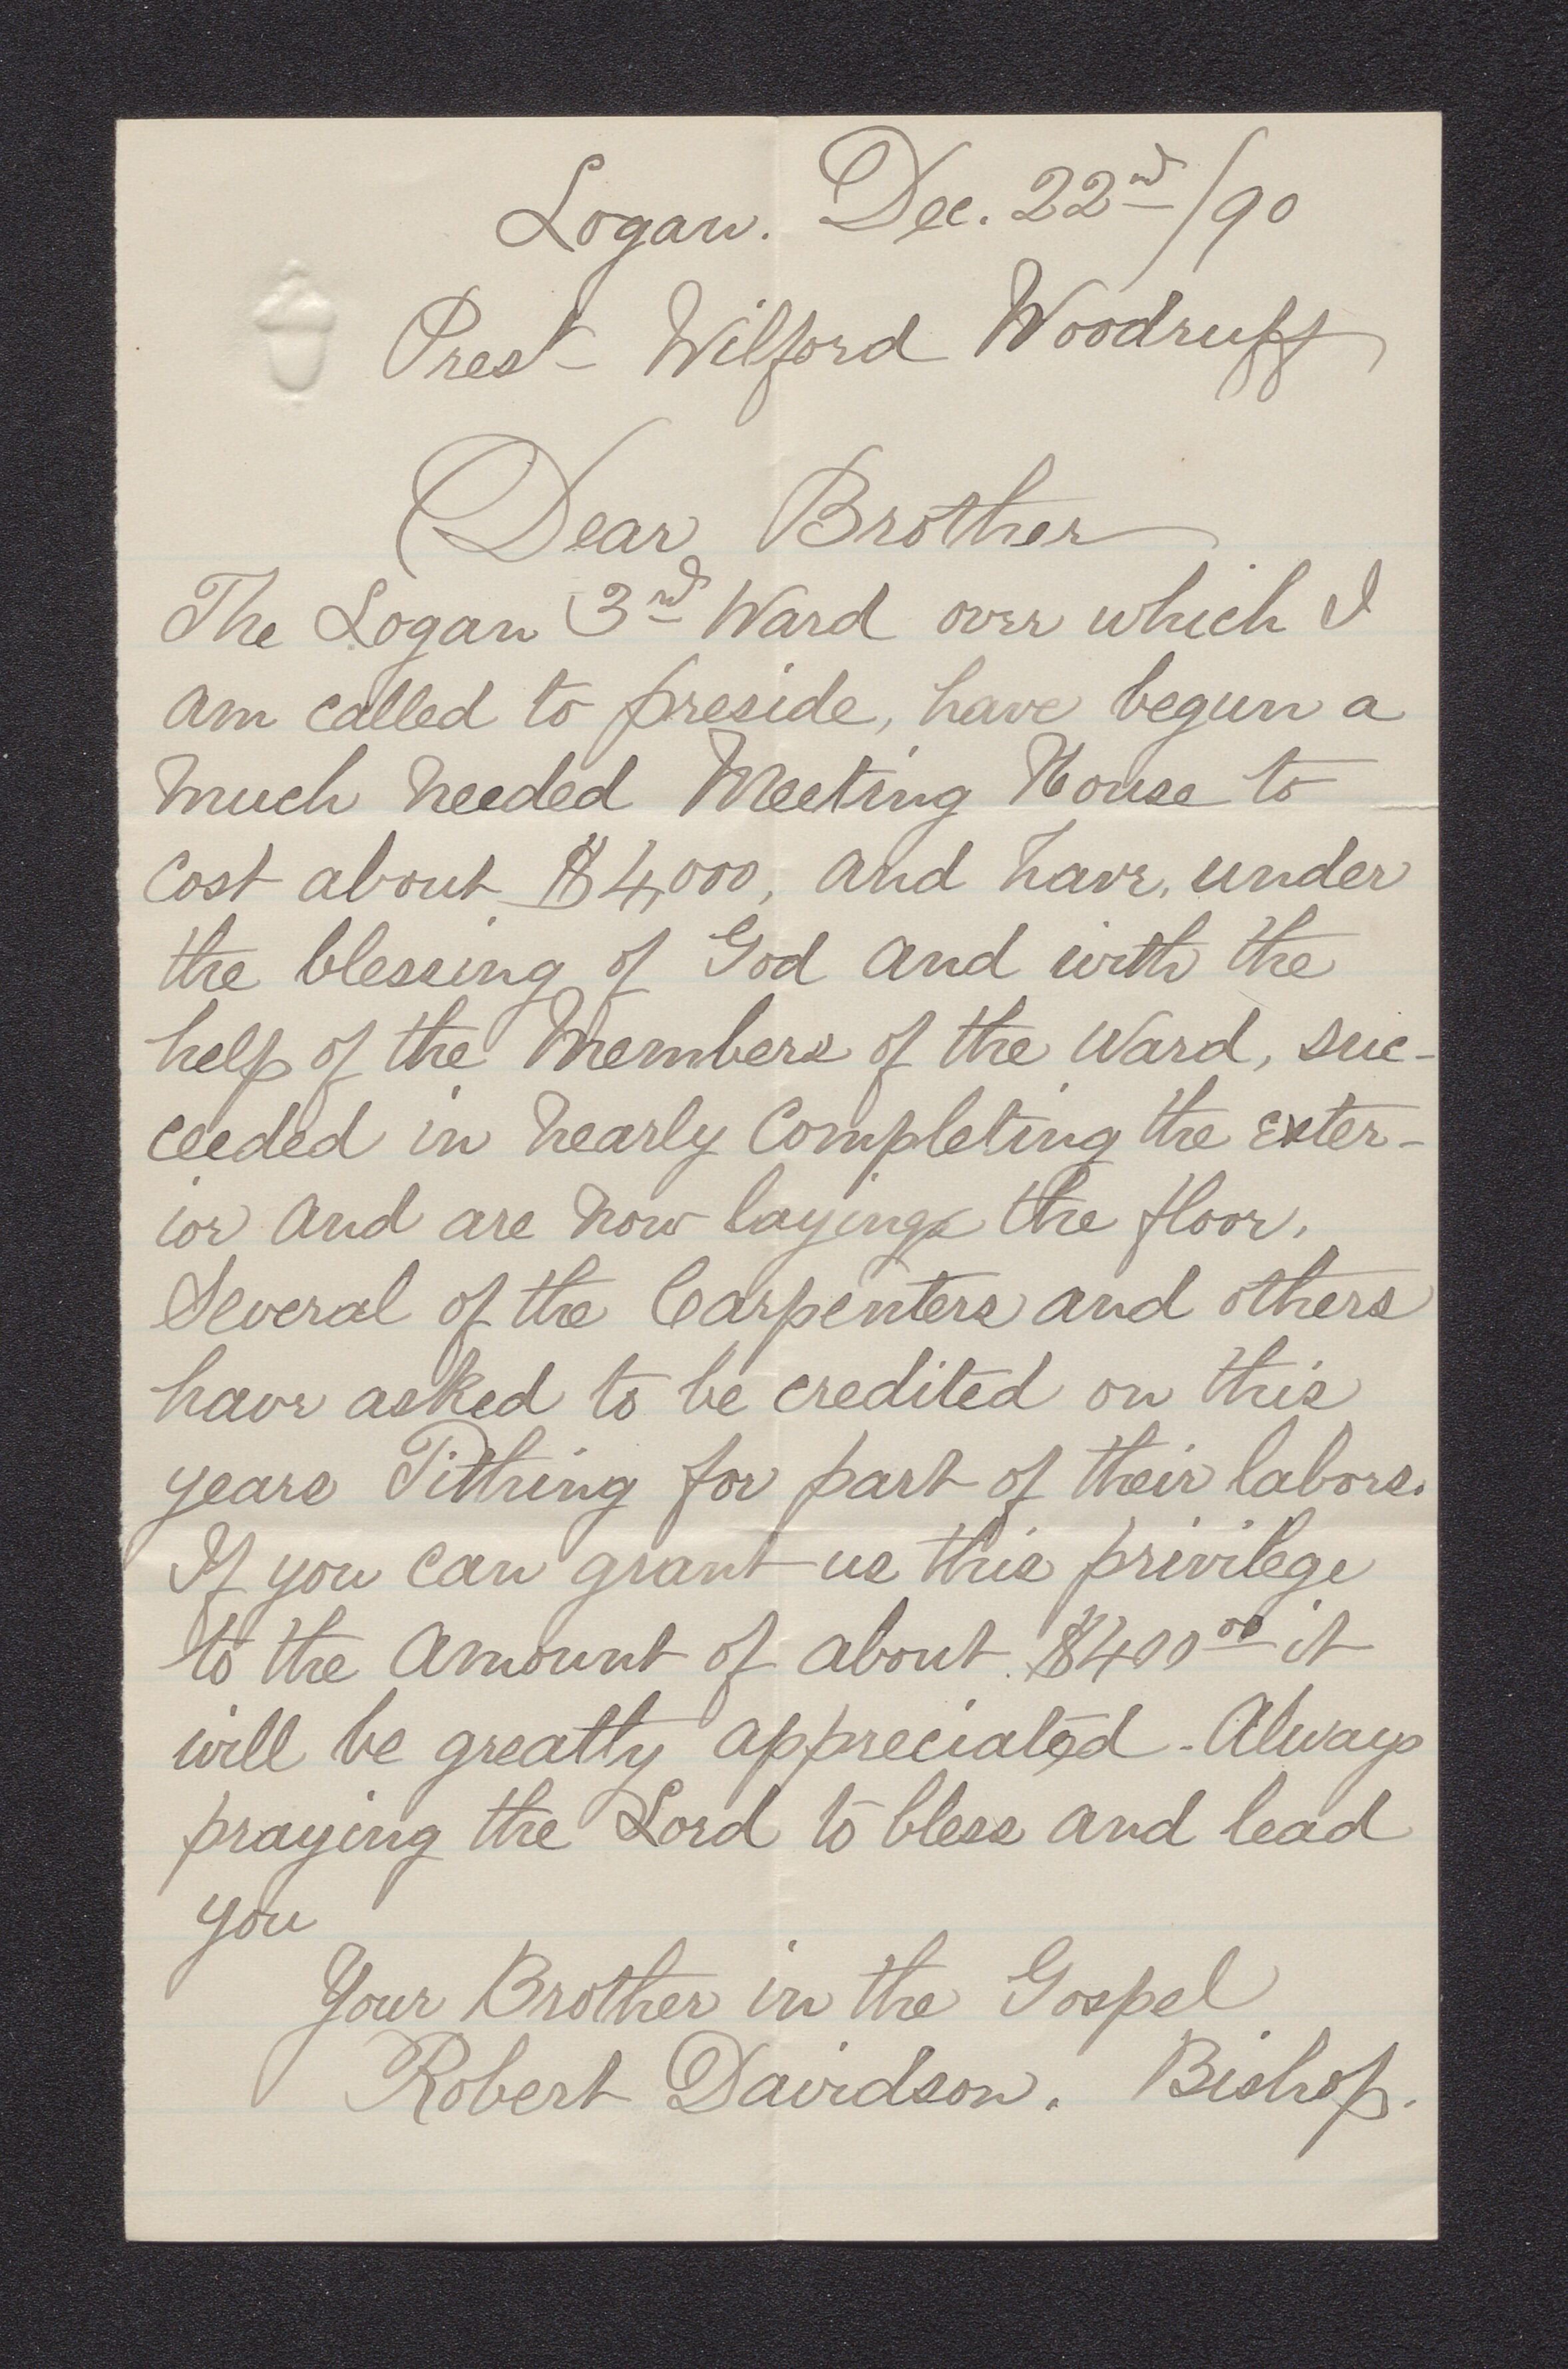 Logan. Dec. 22nd/90
Prest Wilford Woodruff
Dear Brother
The Logan 3rd Ward over which I
am called to preside, have begun a
much needed Meeting House to
cost about $4,000, and have, under
the blessing of God and with the
help of the Members of the Ward, suc-
ceeded in nearly Completing the exter-
ior and are now laying the floor.
Several of the Carpenters and others
have asked to be credited on this
years Tithing for part of their labors.
If you can grant us this privilege
to the amount of about $400 00 it
will be greatly appreciated - Always
praying the Lord to bless and lead
you
Your Brother in the Gospel
Robert Davidson. Bishop.